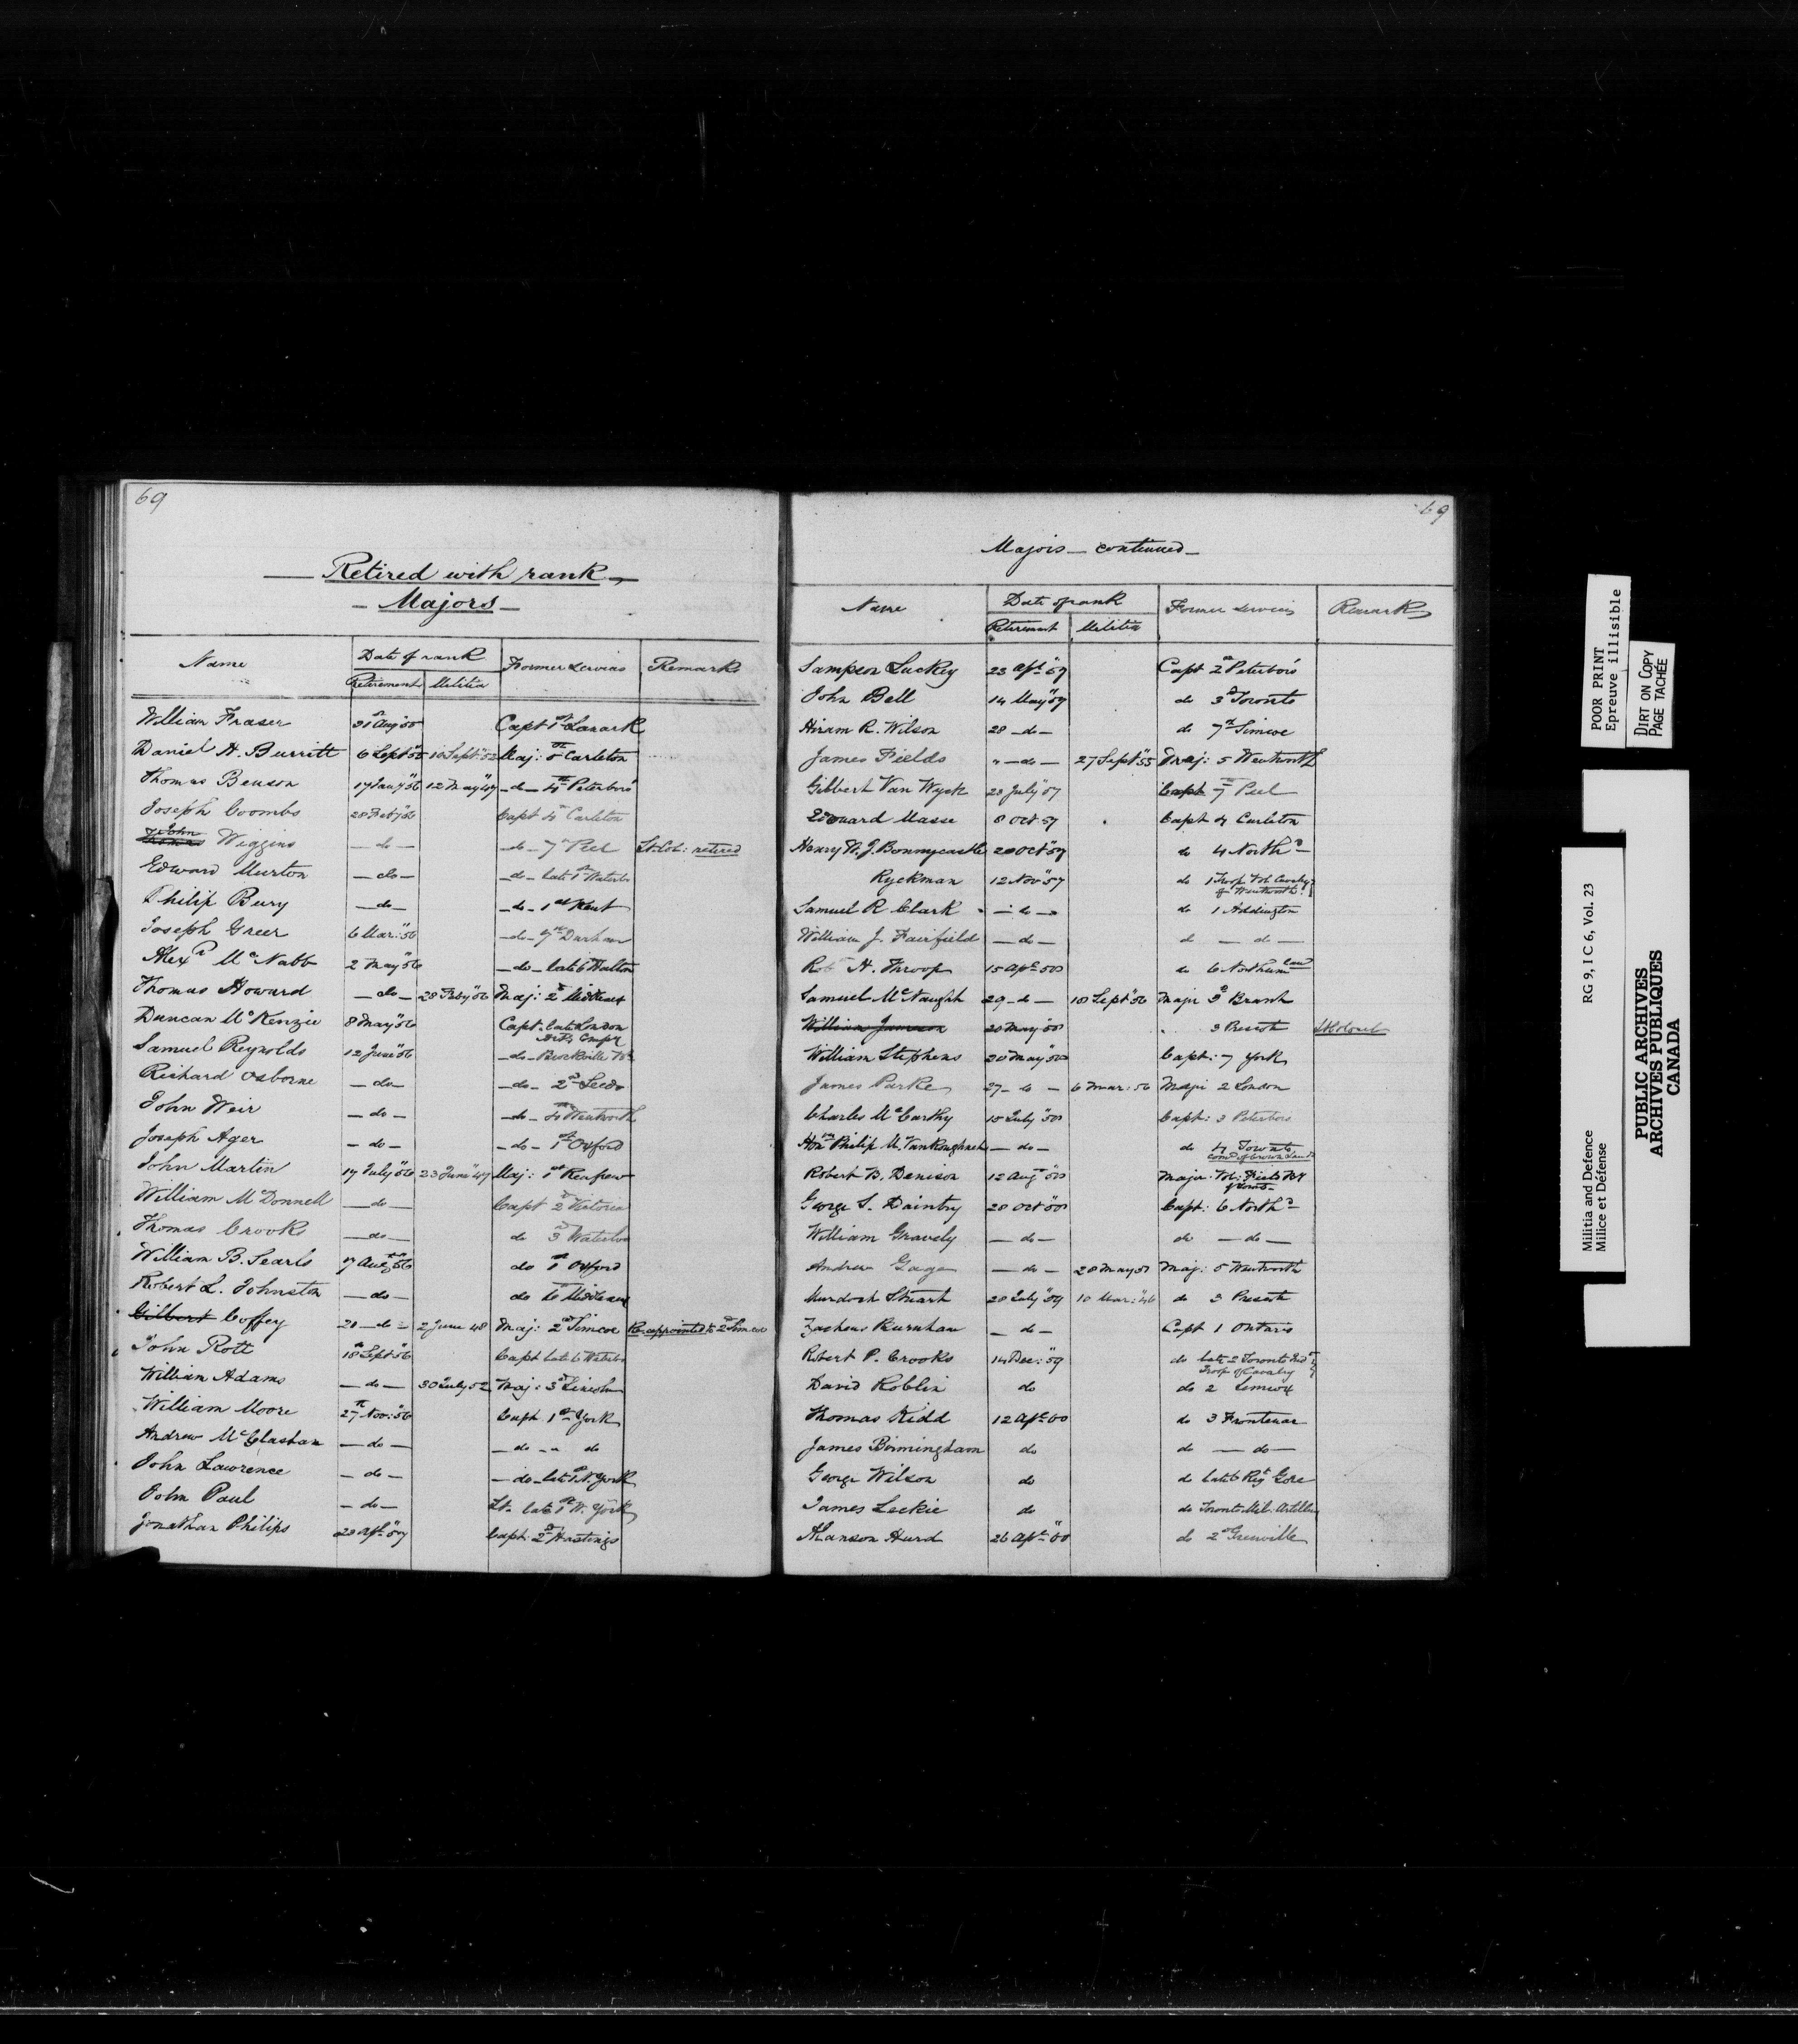 69
Retired with rank
Majors
Name Date of rank Former Services Remarks
Retirement Militia
William Fraser 31st Augt 55 Capt 1st Lanark
Daniel H. Burritt 6 Septr 55 10 Septr 52 Maj: 5th Carleton
Thomas Benson 17 Jany 56 12 May 47 - do - 4th Peterboro'
Joseph Coombs 28 Feby 56 Capt 4th Carleton
John
Thomas Wiggins - do - - do - 7th Peel Lt. Col: retired
Edward Murton - do - - do - late 1st Waterloo
Philip Bury - do - - do - 1st Kent
Joseph Greer 6 Mar: 56 - do - 7th Durham
Alexr McNabb 2 May 56 - do - late 6 Halton
Thomas Howard - do - 28 Feby 56 Maj: 2d Middlesex
Duncan McKenzie 8 May 56 Capt. late London
Arty Compy
Samuel Reynolds 12 June 56 - do - Brockville
Richard Osborne - do - - do - 2nd Leeds
John Weir - do - - do - 4th Wentworth
Joseph Ager - do - - do - 1st Oxford
John Martin 17 July 56 23 June 47 Maj: 1st Renfrew
William McDonnell - do - Capt 2d Victoria
Thomas Crooks - do - do 3d Waterloo
William B. Searls 7 Augt 56 do 1st Oxford
Robert L. Johnston - do - do 6th Middlesex
Gilbert Coffey 21 - do - 2 June 48 Maj: 2nd Simcoe Re-appointed to 2d Simcoe
John Rott 18th Sept 56 Capt late 6 Waterloo
William Adams - do - 30 July 52 Maj: 3d Lincoln
William Moore 27th Nov: 56 Capt. 1st York
Andrew McGlashan - do - - do - " do
John Lawrence - do - - do - late 1st N. York
John Paul - do - Lt. late 1st W. York
Jonathan Philips 23 Apl 57 Capt. 2d Hastings
69
Majors - continued -
Name Date of rank Former services Remarks
Retirement Militia
Sampson Luckey 23 Apl 57 Capt 2d Peterboro'
John Bell 14 May 57 do 3d Toronto
Hiram R. Wilson 28 - do - do 7th Simcoe
James Fields " - do - 27 Sept 55 Maj: 5 Wentworth
Gilbert Van Wyck 23 July 57 Capt 7th Peel
Edouard Masse 8 Oct 57 Capt 4 Carleton
Henry W. J. Bonnycastle 20 Oct 57 do 4 Northd
Ryckman 12 Nov 57 do 1 Troop Vol Cavalry
of Wentworth
Samuel R Clark - do - do 1 Addington
William J. Fairfield - do - do - do -
Robt H. Throop 15 Apl 58 do 6 Northumland
Samuel McNaught 29 - do - 18 Sept 56 Major 3d Brant
William Jameson 20 May 58 3 Prescott Lt Colonel
William Stephens 20 May 58 Capt: 7 York
James Parke 27 - do - 6 Mar: 56 Major 2 London
Charles McCarthy 15 July 58 Capt: 3 Peterboro
Honble Philip M. VanKoughnet - do - do 4 Toronto
Comr of Crown Lands
Robert B. Denison 12 Augt 58 Major Vol: Field By
Toronto
George S. Daintry 28 Oct 58 Capt: 6 Northd
William Gravely - do - do - do -
Andrew Gage - do - 28 May 57 Maj: 5 Wentworth
Murdoch Stuart 20 July 59 10 Mar: 46 do 3 Prescott
Zacheus Burnham - do - Capt 1 Ontario
Robert P. Crooks 14 Dec: 59 do late 2 Toronto Ind
Troop of Cavalry
David Roblin do do 2 Lennox
Thomas Kidd 12 Apl 60 do 3 Frontenac
James Birmingham do do - do -
George Wilson do do late 6 Regt Gore
James Leckie do do Toronto Mil. Artillery
Alanson Hurd 26 Apl 60 do 2d Grenville
POOR PRINT
Epreuve illisible
DIRT ON COPY
PAGE TACHÉE
Militia and Defence RG 9, I C 6, Vol. 23
Milice et Défense
PUBLIC ARCHIVES
ARCHIVES PUBLIQUES
CANADA